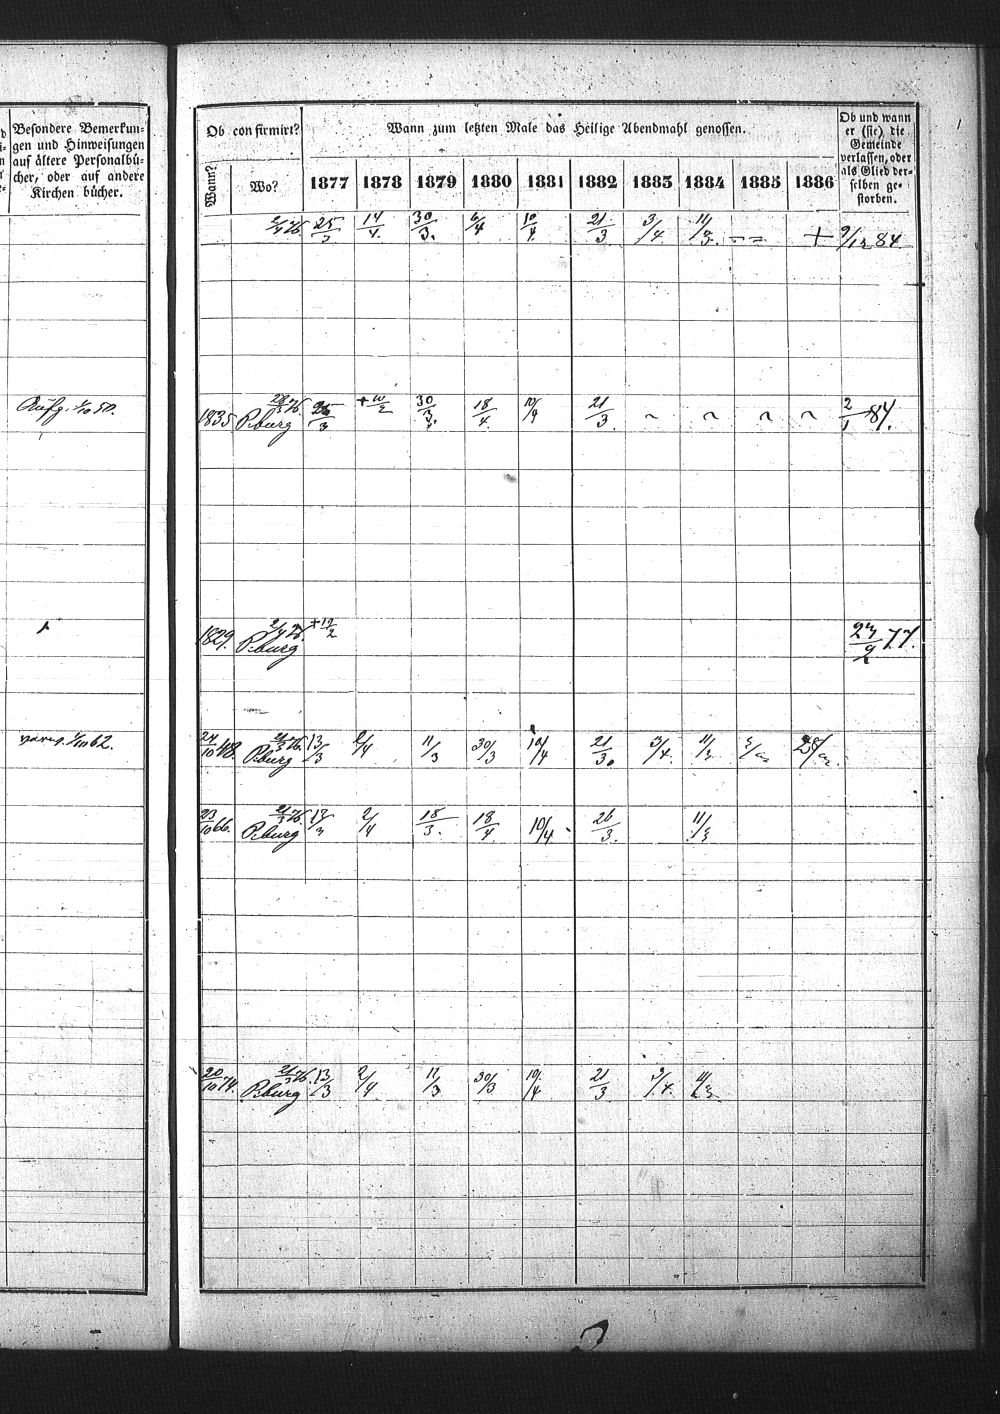 Besondere Bemerkun-
gen und Hinweisungen
auf ältere Personalbü-
cher, oder auf andere
Kirchen bücher.
Aufg. 1/10 50.
1/10 62.
Ob confirmirt?
Wann?
Wo?
Wann zum letzten Male das Heilige Abendmahl genossen.
Ob und wann
er (sie) die
Gemeinde
verlassen, oder
als Glied der-
selben ge-
storben.
1877 1878 1879 1880 1881 1882 1883 1884 1885 1886
2/4 76. 25/3 14/4. 30/3. 6/4 10/4. 21/3. 3/4. 11/3. + 9/12 84.
1835 P.burg 25/3 30/3. 18/4. 10/4 21/3. ~ ~ ~ ~ 2/1 84.
1829. 2/4 76. P.burg +12/2 77.
24/10 48. 21/3 76. P.burg 13/3 2/4 11/3 30/3 10/4 21/3. 3/4. 11/3
23/10 66. 21/3 76. P.burg 13/3 2/4 18/3. 18/4. 10/4. 26/3. 11/3
20/10 74. 21/3 76. P.burg 13/3 2/4 11/3 30/3 10/4 21/3. 3/4. 11/3